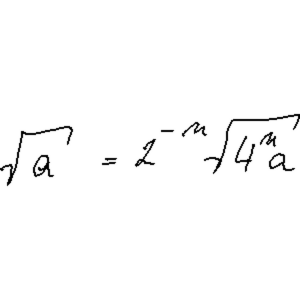 √a = 2⁻ⁿ√(4ⁿa)